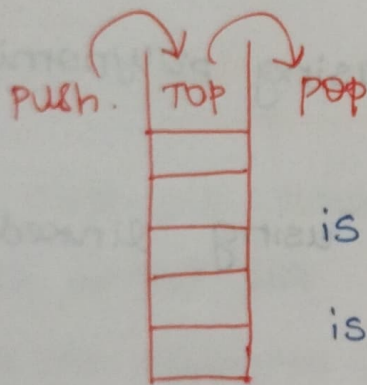 push. TOP pop
is
is